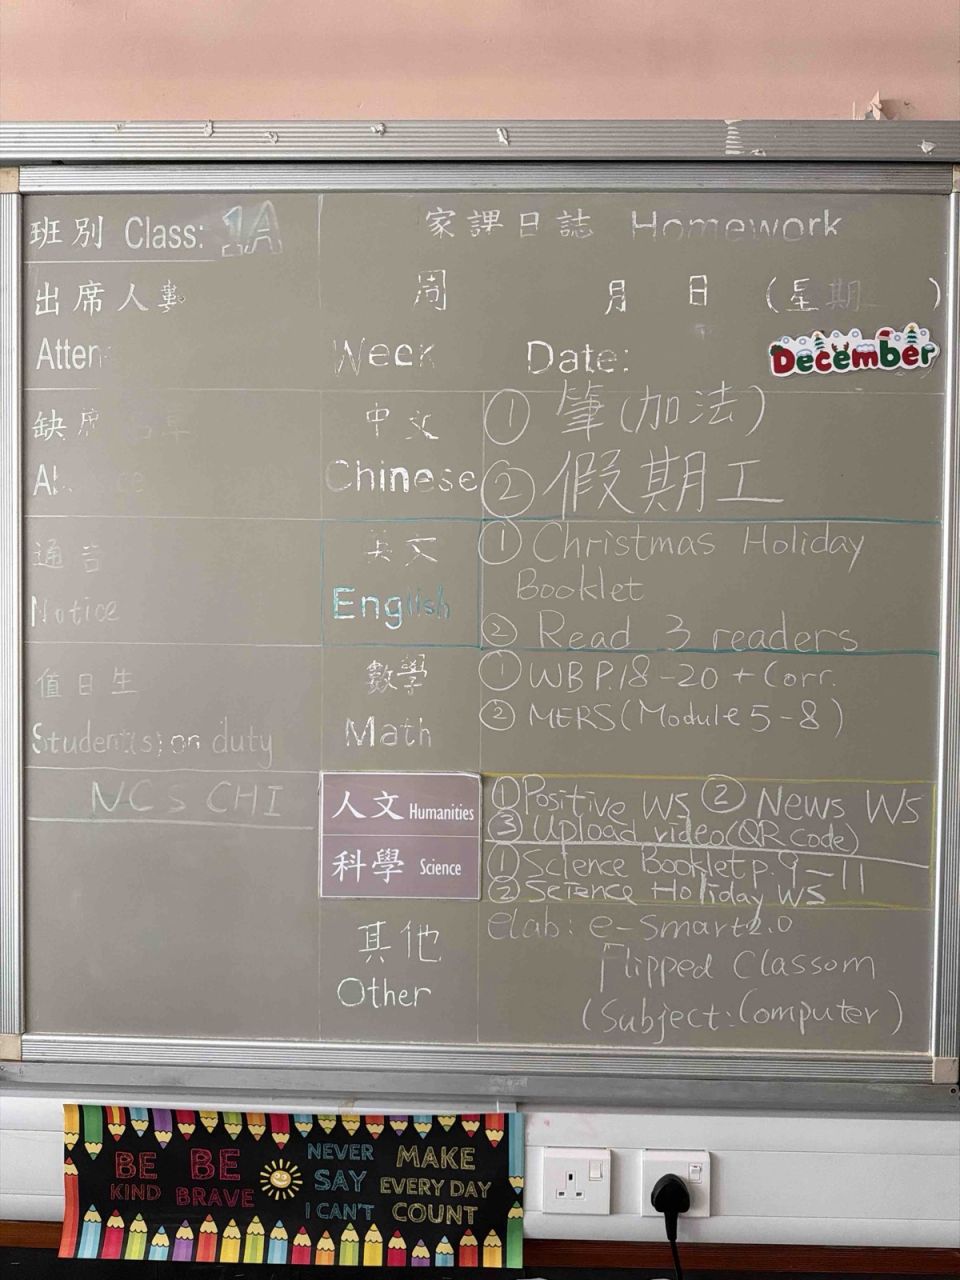 班別 Class: 1A
家課日誌 Homework
出席人數
周 月 日 (星期 )
Atten
Week Date: December
缺席
中文
Chinese
① 筆(加法)
② 假期工
通告
Notice
英文
English
① Christmas Holiday
Booklet
② Read 3 readers
值日生
Student(s) on duty
數學
Math
① WB P.18-20 + Corr.
② MERS (Module 5-8)
NCS CHI
人文 Humanities
① Positive WS ② News WS
③ Upload video (QR code)
科學 Science
① Science Booklet p.9-11
② Science Holiday WS
其他
Other
elab: e-Smart2.0
Flipped Classom
(Subject: Computer)
BE KIND
BE BRAVE
NEVER SAY I CAN'T
MAKE EVERY DAY COUNT